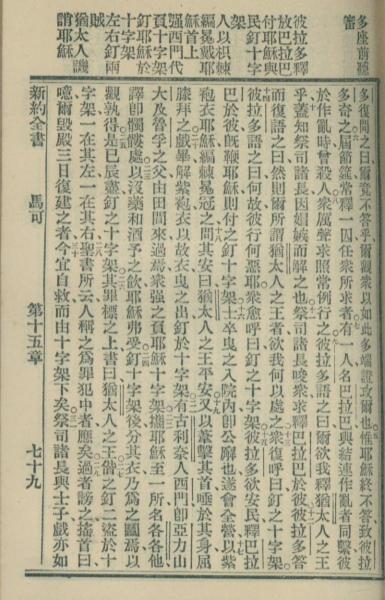 多座前聽審
彼拉多釋
放巴拉巴
付耶穌與
民釘十字
架
人以枳棘
編冕戴耶
穌首上
强西門代
負十字架
釘耶穌於
十字架
左右釘兩
賊
猶太人譏
誚耶穌
多復問之曰爾竟不答乎爾觀衆以如此多端證攻爾也惟耶穌終不答致彼拉
多奇之屆節筵常釋一囚任衆所求者有一人名巴拉巴與結連作亂者同繫彼
於作亂時曾殺人衆厲聲求照常例行之彼拉多語之曰爾欲我釋猶太人之王
乎蓋知祭司諸長因媢嫉而解之也祭司諸長唆衆求釋巴拉巴於彼彼拉多答
而復語之曰然則爾所謂猶太人之王者欲我何以處之衆復呼曰釘之十字架
彼拉多語之曰何故彼行何惡耶衆愈呼曰釘之十字架彼拉多欲安民釋巴拉
巴於彼旣鞭耶穌則付之釘十字架士卒曳之入院內卽公廨也遂會全營以紫
袍衣耶穌編棘冕冠之問其安曰猶太人之王平安又以葦擊其首唾於其身屈
膝拜之戲畢解紫袍衣以故衣曳之出釘於十字架有古利奈人西門卽亞力山
大及魯孚之父由田間來過焉衆强之負耶穌十字架攜耶穌至一所名各各他
譯卽髑髏處以沒藥和酒予之飲耶穌弗受釘十字架後分其衣乃爲之鬮焉以
觀孰得是已辰盡釘之十字架其罪標之上書曰猶太人之王偕之釘二盜於十
字架一在其左一在其右聖書所云人稱之爲罪犯中者應矣過者謗之搖首曰
噫爾毀殿三日復建之者今宜自救而由十字架下矣祭司諸長與士子戲亦如
新約全書 馬可 第十五章 七十九